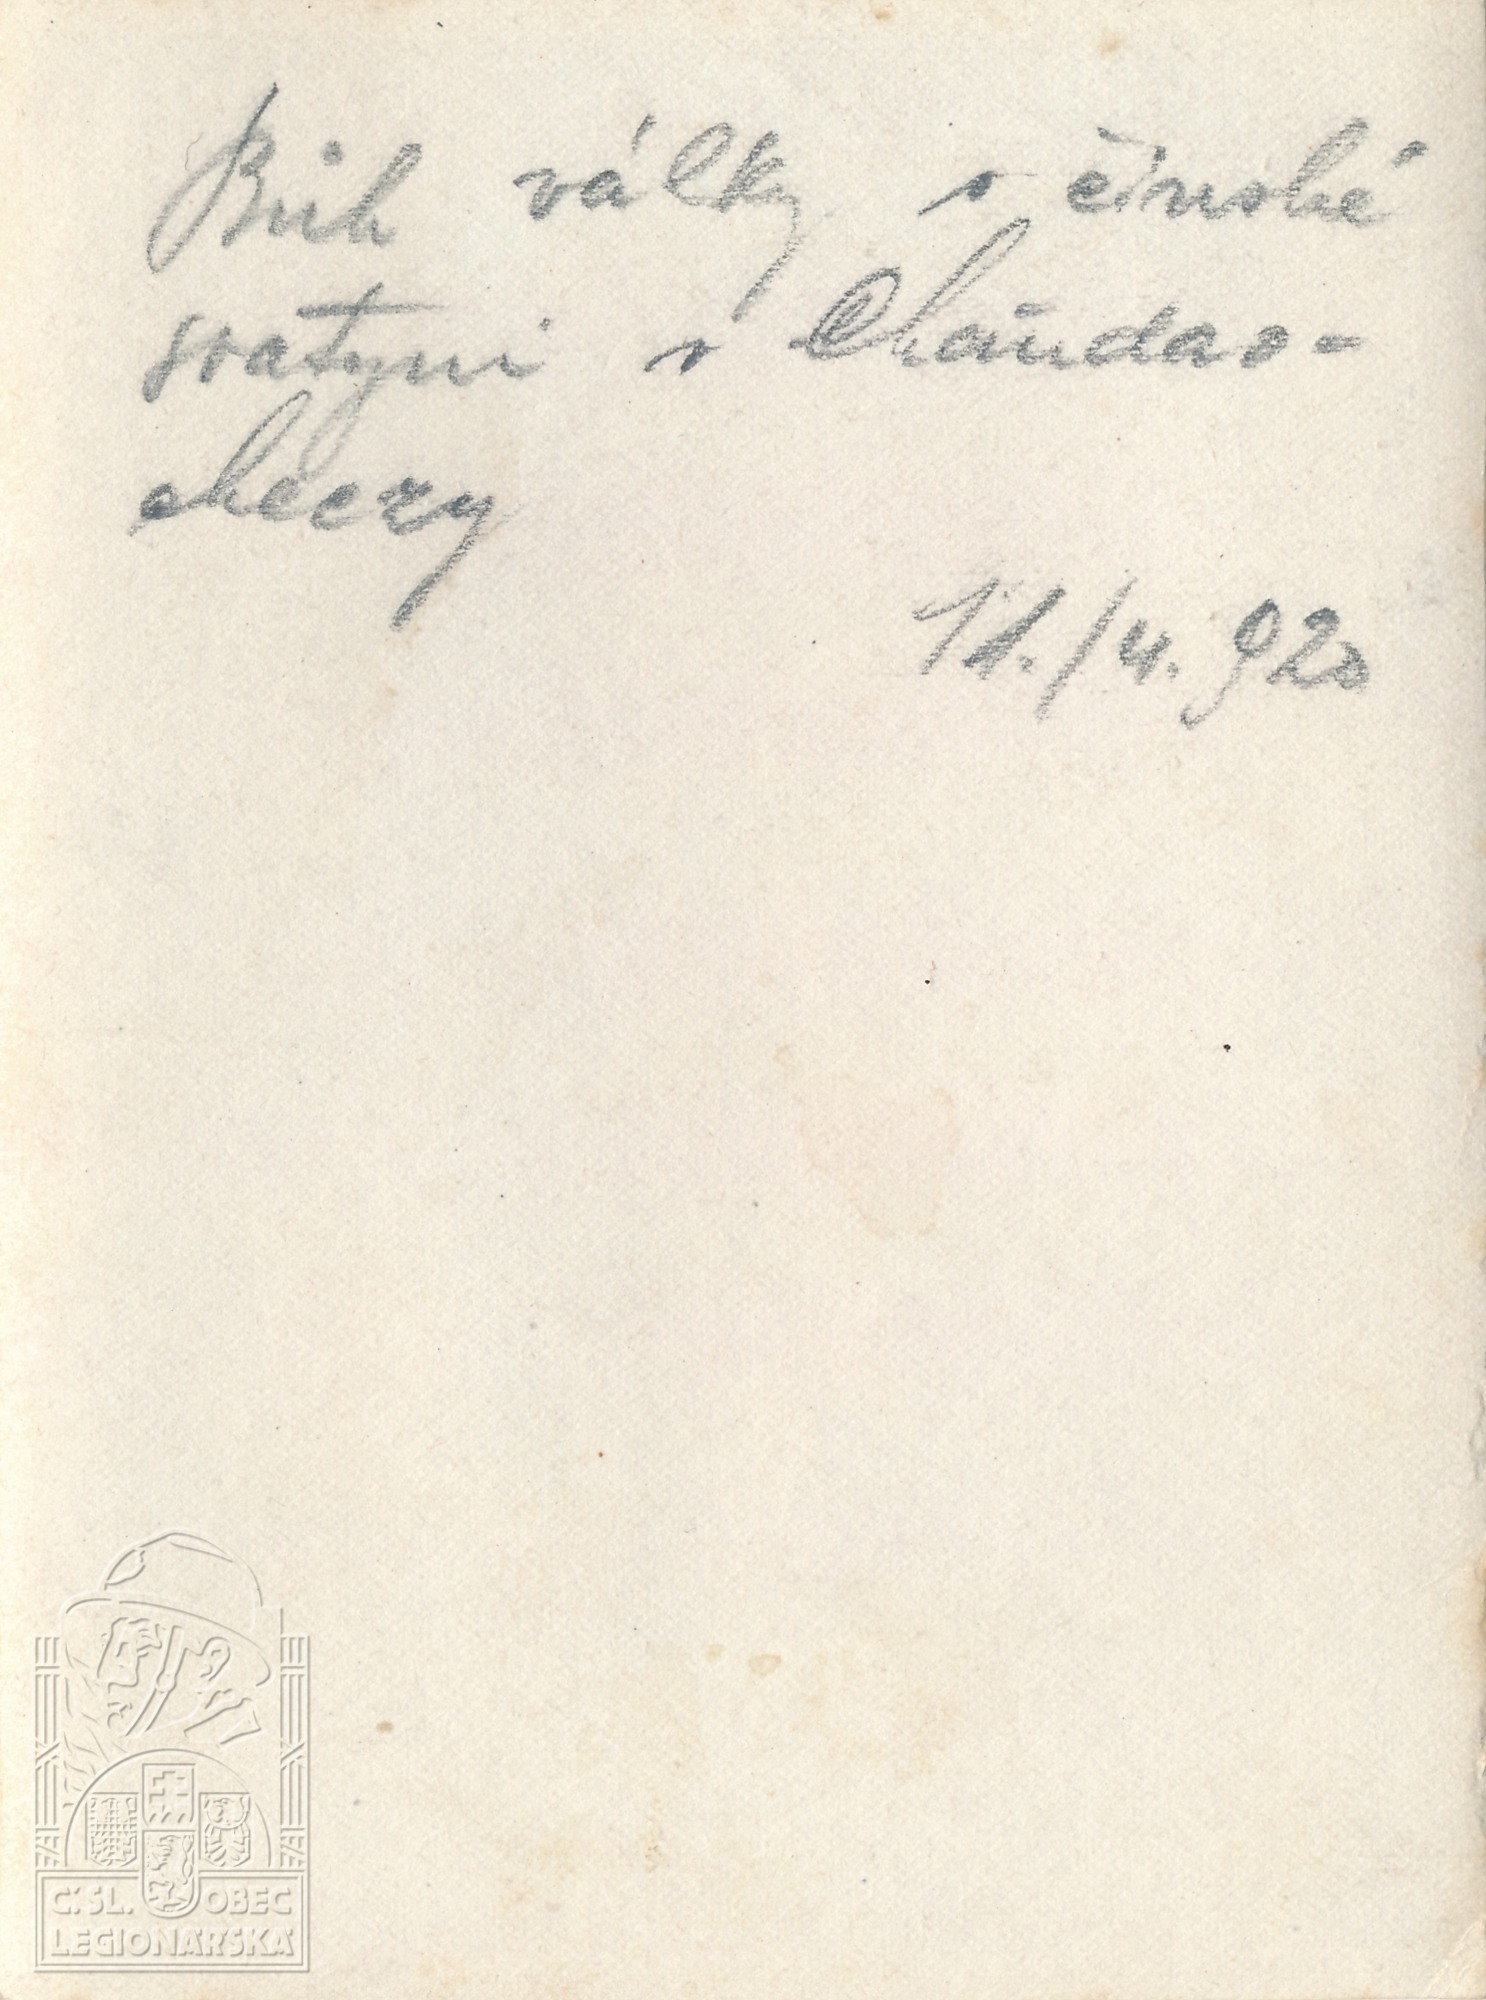 Bůh války v čínské
svatyni v Chaŭdao-
checzy
11./4. 920
Č.SL. OBEC
LEGIONÁŘSKÁ